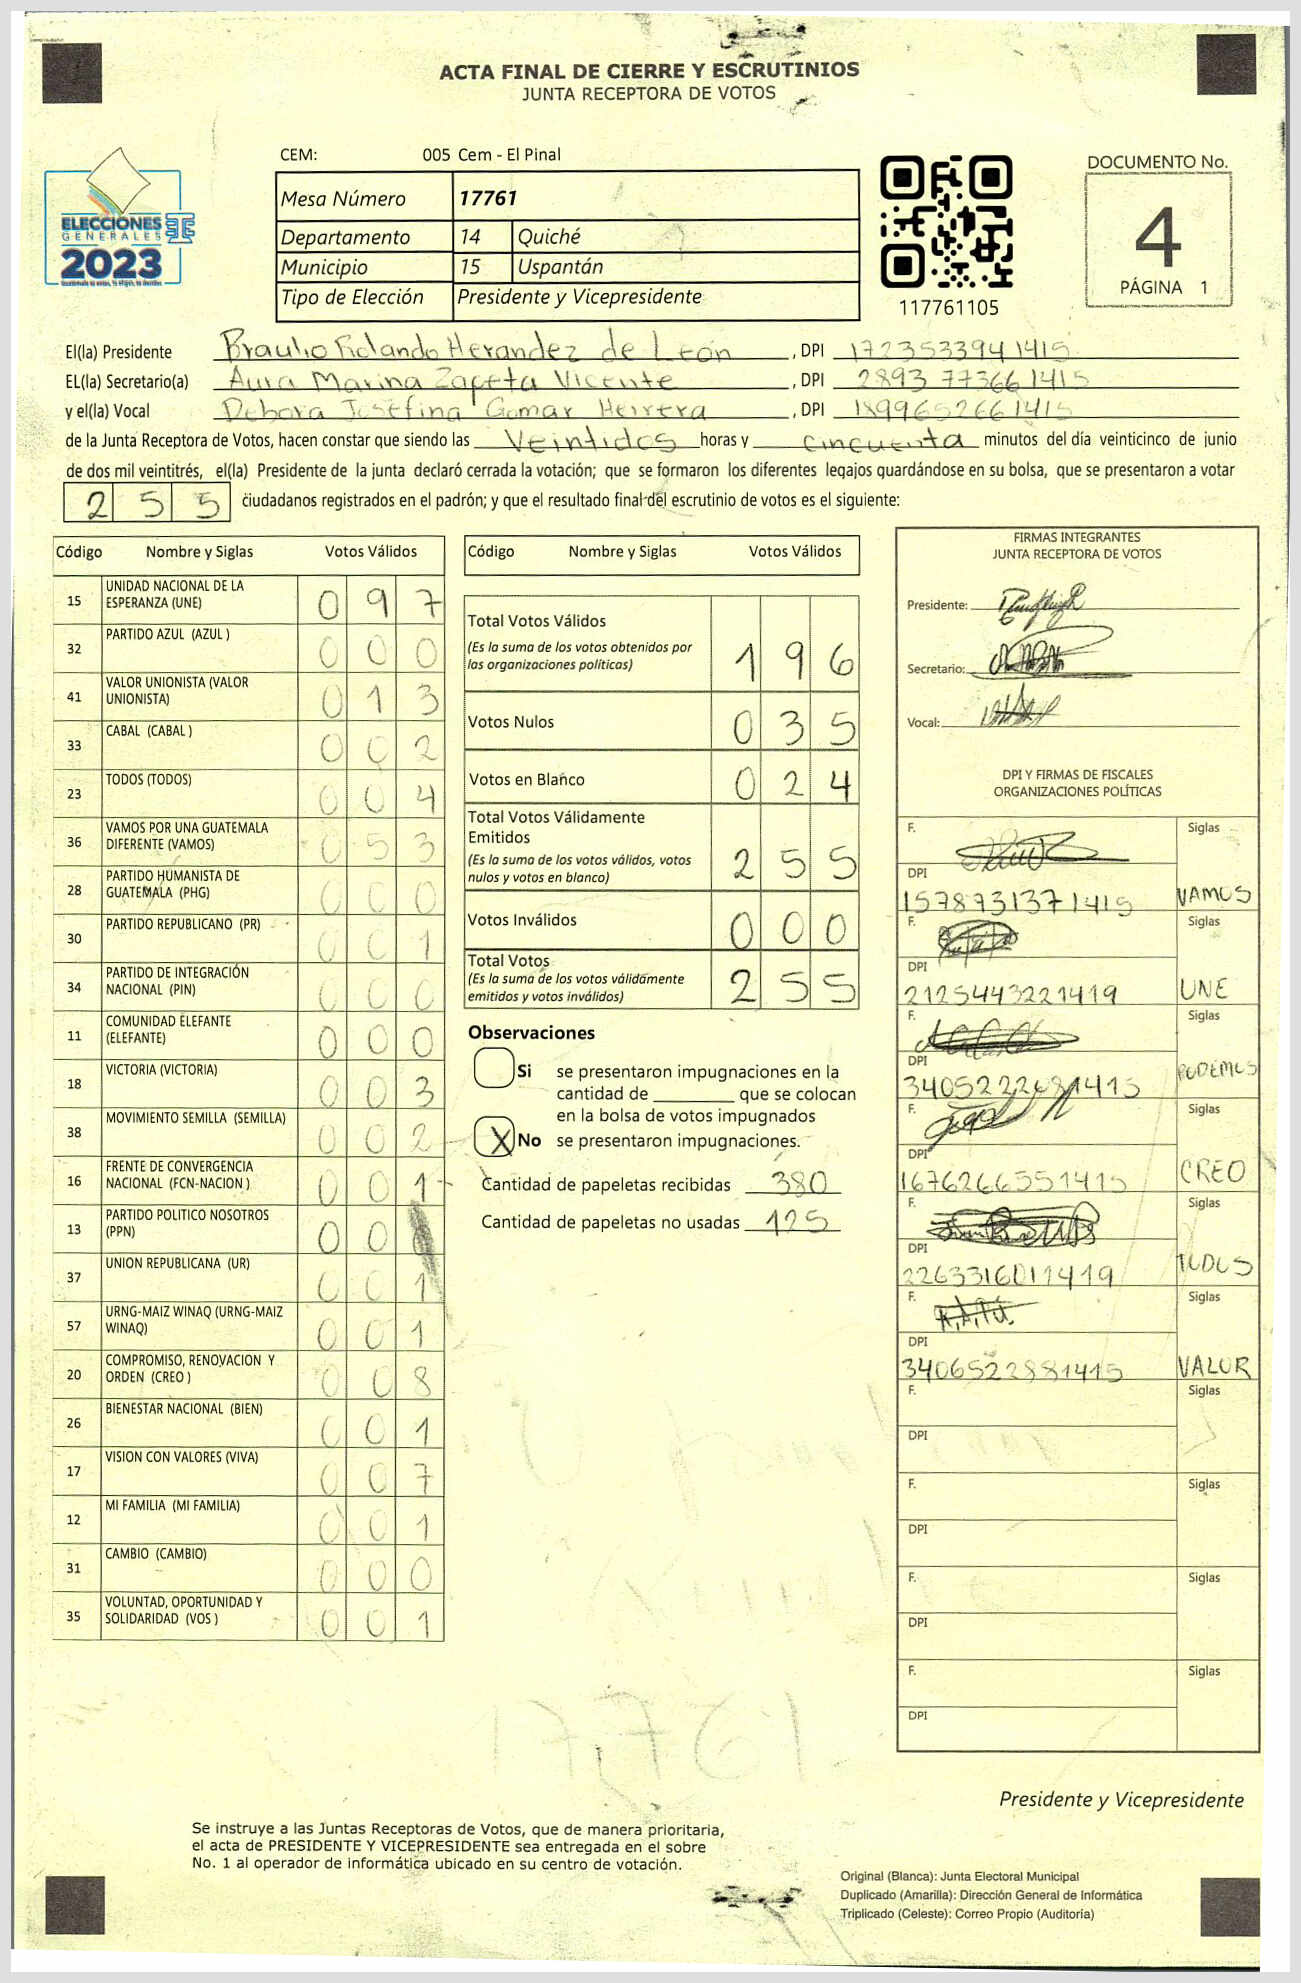 ACTA FINAL DE CIERRE Y ESCRUTINIOS
JUNTA RECEPTORA DE VOTOS
CEM: 005 Cem - El Pinal
DOCUMENTO No.
4
PÁGINA 1
ELECCIONES
GENERALES
2023
Mesa Número 17761
Departamento 14 Quiché
Municipio 15 Uspantán
Tipo de Elección Presidente y Vicepresidente
117761105
El(la) Presidente Braulio Rolando Herandez de León , DPI 1723533941415
EL(la) Secretario(a) Aura Marina Zapeta Vicente , DPI 2893 773661415
y el(la) Vocal Debora Josefina Gamar Herrera , DPI 1899652661415
de la Junta Receptora de Votos, hacen constar que siendo las Veintidos horas y cincuenta minutos del día veinticinco de junio
de dos mil veintitrés, el(la) Presidente de la junta declaró cerrada la votación; que se formaron los diferentes legajos guardándose en su bolsa, que se presentaron a votar
2 5 5 ciudadanos registrados en el padrón; y que el resultado final del escrutinio de votos es el siguiente:
Código Nombre y Siglas Votos Válidos
15 UNIDAD NACIONAL DE LA ESPERANZA (UNE) 0 9 7
32 PARTIDO AZUL (AZUL ) 0 0 0
41 VALOR UNIONISTA (VALOR UNIONISTA) 0 1 3
33 CABAL (CABAL ) 0 0 2
23 TODOS (TODOS) 0 0 4
36 VAMOS POR UNA GUATEMALA DIFERENTE (VAMOS) 0 5 3
28 PARTIDO HUMANISTA DE GUATEMALA (PHG) 0 0 0
30 PARTIDO REPUBLICANO (PR) 0 0 1
34 PARTIDO DE INTEGRACIÓN NACIONAL (PIN) 0 0 0
11 COMUNIDAD ELEFANTE (ELEFANTE) 0 0 0
18 VICTORIA (VICTORIA) 0 0 3
38 MOVIMIENTO SEMILLA (SEMILLA) 0 0 2
16 FRENTE DE CONVERGENCIA NACIONAL (FCN-NACION ) 0 0 1
13 PARTIDO POLITICO NOSOTROS (PPN) 0 0
37 UNION REPUBLICANA (UR) 0 0 1
57 URNG-MAIZ WINAQ (URNG-MAIZ WINAQ) 0 0 1
20 COMPROMISO, RENOVACION Y ORDEN (CREO ) 0 0 8
26 BIENESTAR NACIONAL (BIEN) 0 0 1
17 VISION CON VALORES (VIVA) 0 0 7
12 MI FAMILIA (MI FAMILIA) 0 0 1
31 CAMBIO (CAMBIO) 0 0 0
35 VOLUNTAD, OPORTUNIDAD Y SOLIDARIDAD (VOS ) 0 0 1
Código Nombre y Siglas Votos Válidos
Total Votos Válidos 1 9 6
(Es la suma de los votos obtenidos por
las organizaciones políticas)
Votos Nulos 0 3 5
Votos en Blanco 0 2 4
Total Votos Válidamente
Emitidos 2 5 5
(Es la suma de los votos válidos, votos
nulos y votos en blanco)
Votos Inválidos 0 0 0
Total Votos 2 5 5
(Es la suma de los votos válidamente
emitidos y votos inválidos)
Observaciones
Si se presentaron impugnaciones en la
cantidad de ________ que se colocan
en la bolsa de votos impugnados
X No se presentaron impugnaciones.
Cantidad de papeletas recibidas 380
Cantidad de papeletas no usadas 125
FIRMAS INTEGRANTES
JUNTA RECEPTORA DE VOTOS
Presidente:
Secretario:
Vocal:
DPI Y FIRMAS DE FISCALES
ORGANIZACIONES POLÍTICAS
F. Siglas
DPI
1578731371415 VAMOS
F. Siglas
DPI
2125443221419 UNE
F. Siglas
DPI
3405222681415 PODEMOS
F. Siglas
DPI
1676266551415 CREO
F. Siglas
DPI
2263316011419 TODOS
F. Siglas
DPI
3406522881415 VALOR
F. Siglas
DPI
F. Siglas
DPI
F. Siglas
DPI
F. Siglas
DPI
Presidente y Vicepresidente
Se instruye a las Juntas Receptoras de Votos, que de manera prioritaria,
el acta de PRESIDENTE Y VICEPRESIDENTE sea entregada en el sobre
No. 1 al operador de informática ubicado en su centro de votación.
Original (Blanca): Junta Electoral Municipal
Duplicado (Amarilla): Dirección General de Informática
Triplicado (Celeste): Correo Propio (Auditoría)